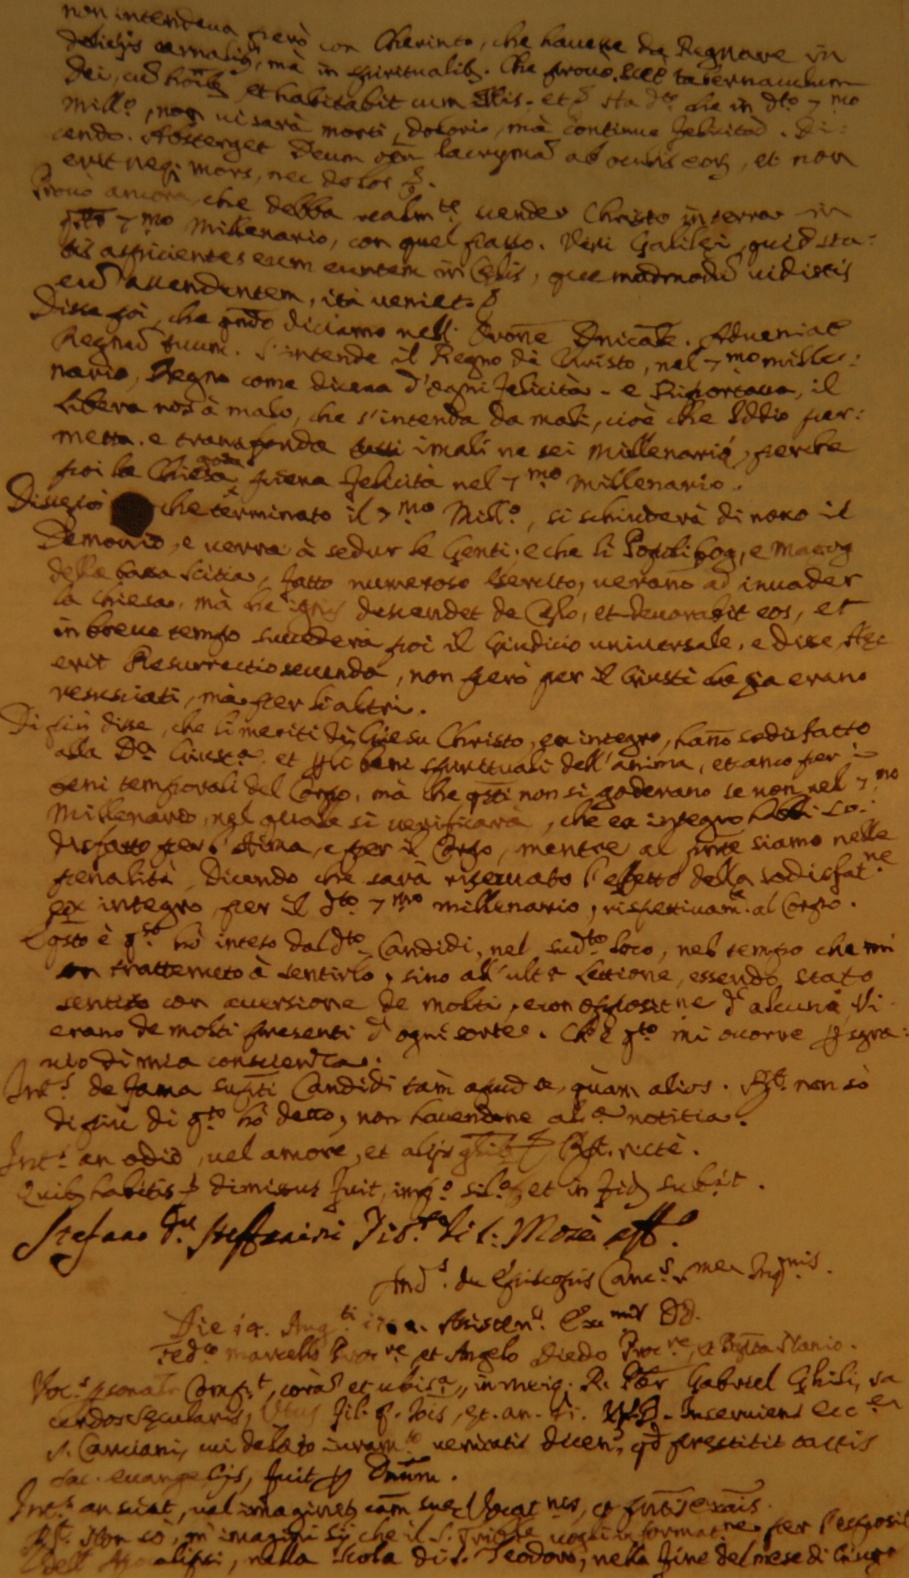 non intendeva però con Cherinto, che havesse da Regnare in
delitijs carnalib9, mà in spiritualib9. Che provò. Ecce tabernaculum
Dei, cũ hõib9 et habitabit cum Illis. et p sta dto che in dto 7mo
Millo, non vi sarà morti, dolori, mà continua felicità. Di:
cendo. Absterget Deum oẽm lacrymã ab oculis eorũ, et non
erit neq; mors, nec dolor &.
Provò ancora, che debba realmte vender Christo in terra in
qsto 7mo Millenario, con quel passo. Viri Galilei, quid sta:
tis aspicientes eum euntem in Celis, quemadmodũ vidistis
eũ ascendentem, ità veniet. &
Disse poi, che qndo diciamo nell' Orõne Dnicale. Adveniat
Regnũ tuum. S'intende il Regno di Christo, nel 7mo mille:
nario, Regno come diceva d'ogni felicità - e Riportava, il
Libera nos à malo, che s'intenda da mali, cioè che Iddio per:
metta e tutti i mali ne sei Millenarij, perche
poi la Chiesa goda piena felicità nel 7mo Millenario.
Disse poi che terminato il 7mo Millo, si schiuderà di novo il
Demonio, e verrà à sedur le Genti. e che li Popoli Gog, e Magog
della bassa Scitia, fatto numeroso esercito, verano ad invader
la Chiesa, mà che ignis descendet de Celo, et devorabit eos, et
in breve tempo succederà poi il Giudicio universale, e disse Hec
erit Resurrectio secunda, non però per il Giusti che già erano
resusciati, mà per li altri.
Di più disse, che li meriti di Giesu Christo, ex integro, hano sodisfatto
alla Da Giusta et beni spirituali dell'anima, et anco per i
beni temporali del Corpo, mà che qsti non si goderano se non nel 7mo
Millenario, nel quale si verificarà, che ex integro habbi so:
disfatto per l'Anima, e per il Corpo, mentre al pnte siamo nelle
penalità, Dicendo che sarà riservato l'effetto della sodisfatne
ex integro, per il dto 7mo millenario, rispettivamte al Corpo.
E qsto è qto hò inteso dal dto Candidi, nel sudto loco, nel tempo che mi
son trattenuto à sentirlo, sino all'ulta Lettione, essendo stato
sentito con aversione de molti, e con oppositne d'alcuni, Vi
erano de molti presenti d'ogni sorte. Ch'è qto mi ocorre p sgra:
vio di mia conscienza.
Ints de fama supti Candidi tam apud se, quam alios. Rt. non sò
di più di qto hò detto, non havendone ala notitia.
Ints an odio, vel amore, et alijs glib9 & Rt. rectè.
Quib9 habitis & dimissus fuit, impo silo, et in fidẽ subsit.
Stefano Steffanini di S: Moisè affo.
Ands de Episcopis Cancs
Die 14. Augti Assistenti Excmis DD.
Fedco Marcello Procre, et Angelo Diedo Procre, et Btta Nanio.
Vocs psonalr compt, corã et ubi sa, in meiq; R. Pbr Gabriel Ghisi, sa
cerdos secularis, fil. q. Iois, et. an. Inserviens ecc
S. Canciani, cui delato iuramto veritatis dicen, qd prestitit tactis
sac. evangelijs, fuit p Dnum.
Ints an sciat, vel imaginet cãm sue Vocatnis, et pntis exais.
Rt. Non so, m'imagini sij che il S. Trible vogli informatne per l'esposit
dell' Apocalipsi, nella Scola di S. Teodoro, nella fine del mese di Giug